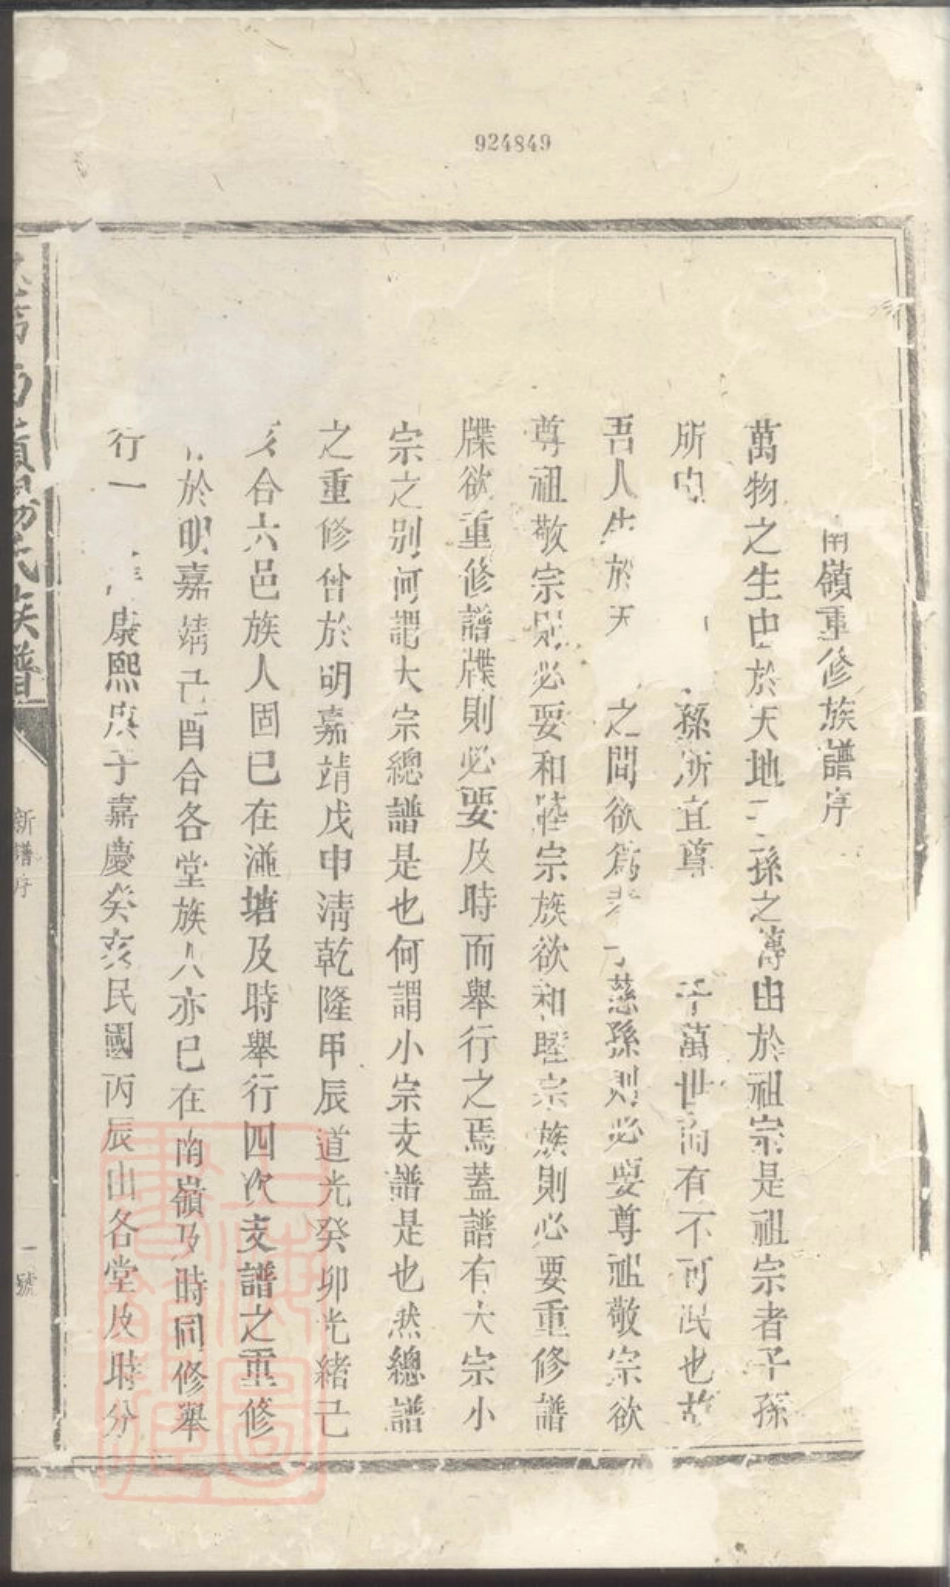 924849
南嶺重修族譜序
萬物之生由於天地子孫之傳由於祖宗是祖宗者子孫
所由 孫所宜尊 千萬世而有不可泯也故
吾人生於天 之間欲為孝子慈孫則必要尊祖敬宗欲
尊祖敬宗則必要和睦宗族欲和睦宗族則必要重修譜
牒欲重修譜牒則必要及時而舉行之焉蓋譜有大宗小
宗之別何謂大宗總譜是也何謂小宗支譜是也然總譜
之重修曾於明嘉靖戊申清乾隆甲辰道光癸卯光緒己
亥合六邑族人固已在 塘及時舉行四次支譜之重修
於明嘉靖己酉合各堂族人亦已在南嶺及時同修舉
行一 康熙庚子嘉慶癸亥民國丙辰由各堂及時分
南嶺 氏族譜
新譜序
一號